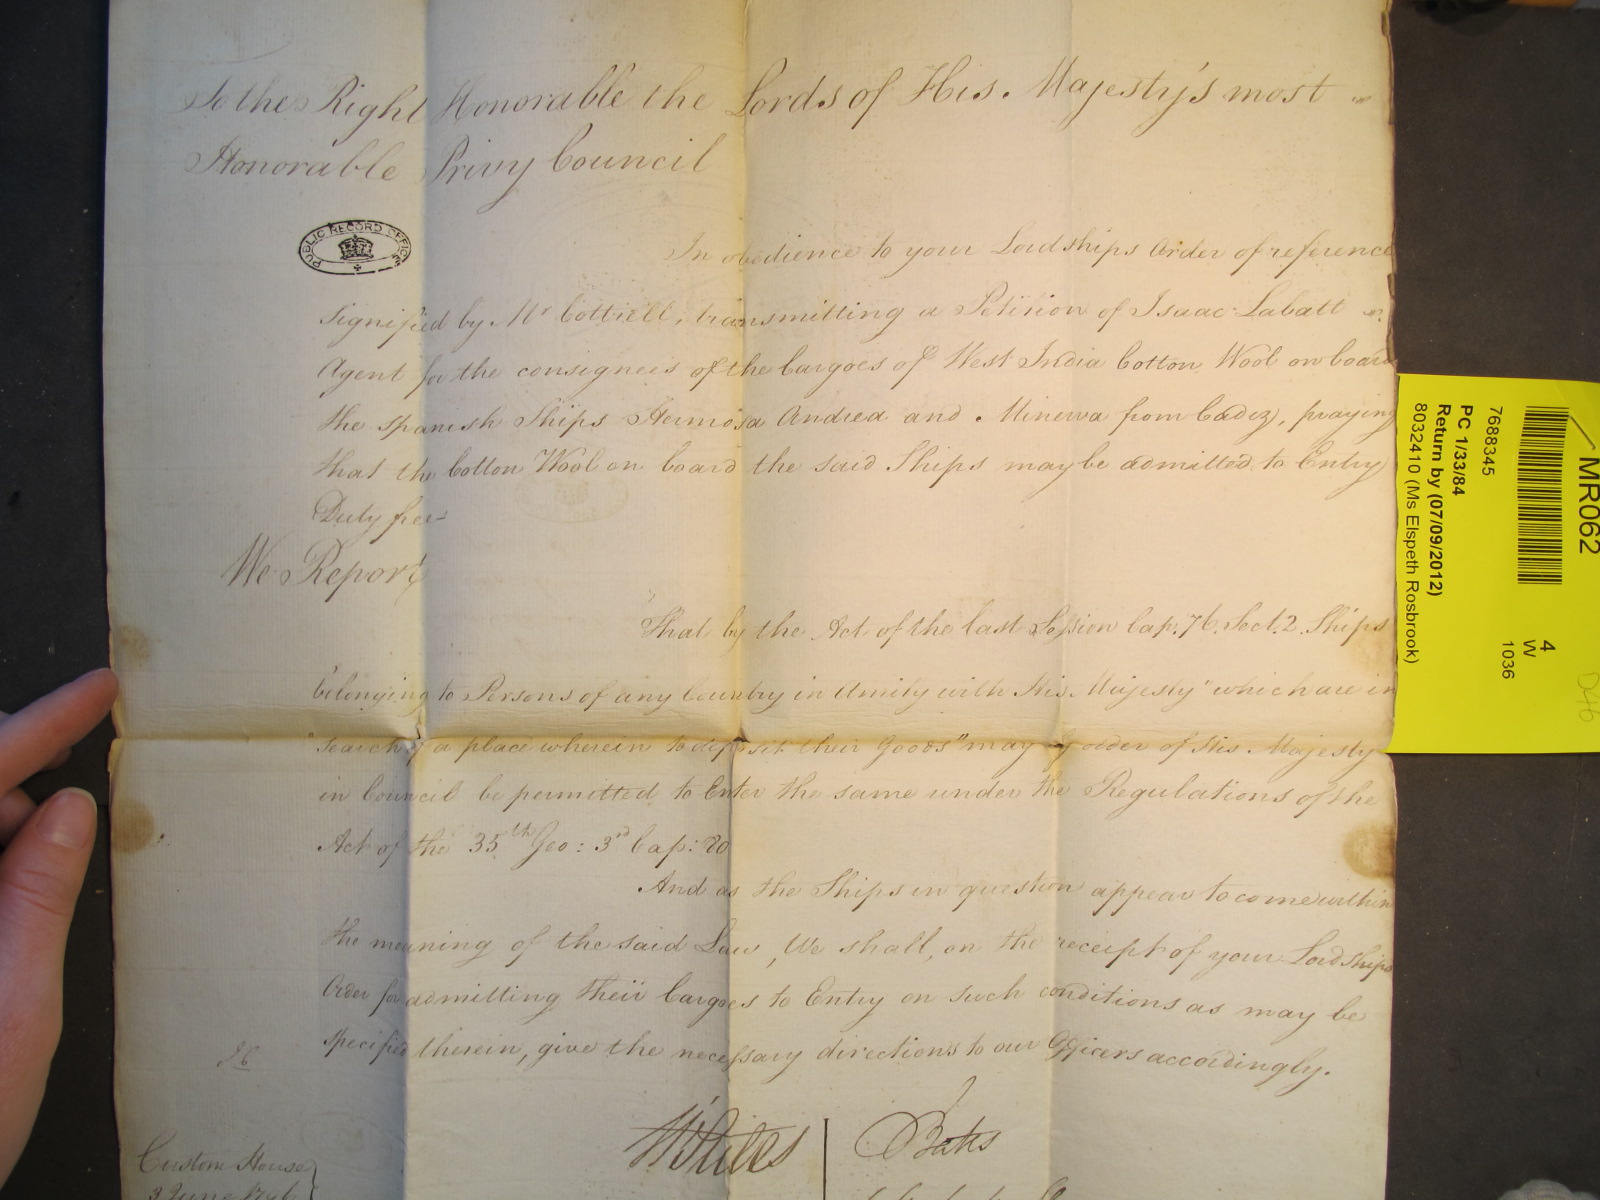 To the Right Honorable the Lords of His Majesty's most
Honorable Privy Council
PUBLIC RECORD OFFICE
In obedience to your Lordships Order of reference
signified by Mr Cottrell, transmitting a Petition of Isaac Labatt
Agent for the consignees of the Cargoes of West India Cotton Wool on board
the Spanish Ships Hermosa Andrea and Minerva from Cadiz, praying
that the Cotton Wool on board the said Ships may be admitted to Entry
Duty free
We Report
That by the Act of the last Session Cap: 76. Sect. 2. Ships
belonging to Persons of any Country in Amity with His Majesty "which are in
"search of a place wherein to deposit their Goods" may by order of His Majesty
in Council be permitted to Enter the same under the Regulations of the
Act of the 35th Geo: 3rd Cap: 80
And as the Ships in question appear to come within
the meaning of the said Law, We shall, on the receipt of your Lordships
Order for admitting their Cargoes to Entry on such conditions as may be
specified therein, give the necessary directions to our Officers accordingly.
Custom House
3 June 1796
W Stiles
J Bates
MR062
7688345
PC 1/33/84
Return by (07/09/2012)
8032410 (Ms Elspeth Rosbrook)
4
W
1036
D46